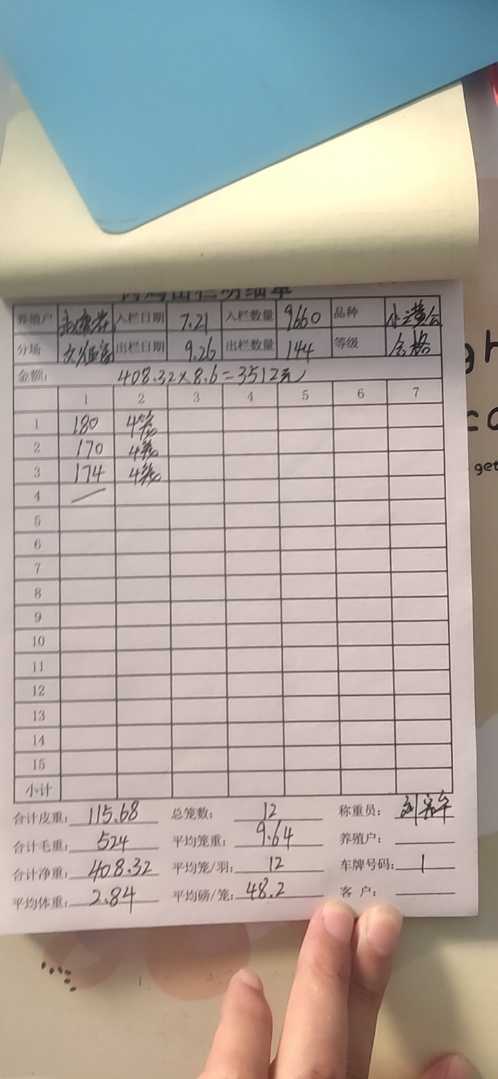 肉鸡出栏明细单
养殖户 入栏日期 7.21 入栏数量 9660 品种
分场 出栏日期 9.26 出栏数量 144 等级 合格
金额: 408.32×8.6=3512元
1 2 3 4 5 6 7
1 180 4笼
2 170 4笼
3 174 4笼
4
5
6
7
8
9
10
11
12
13
14
15
小计
合计皮重: 115.68 总笼数: 12 称重员:
合计毛重: 524 平均笼重: 9.64 养殖户:
合计净重: 408.32 平均笼/羽: 12 车牌号码: 1
平均体重: 2.84 平均磅/笼: 48.2 客 户:
get